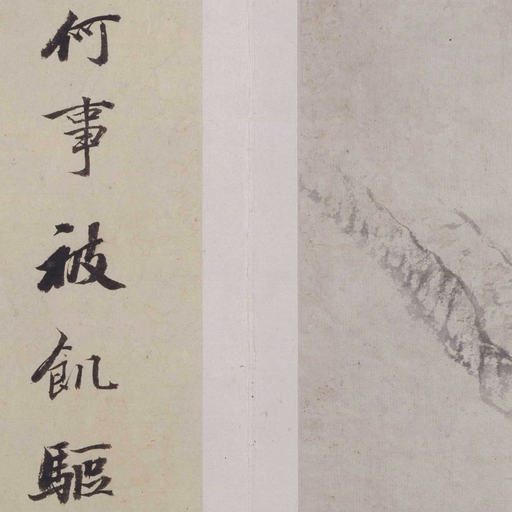 何事被飢驅